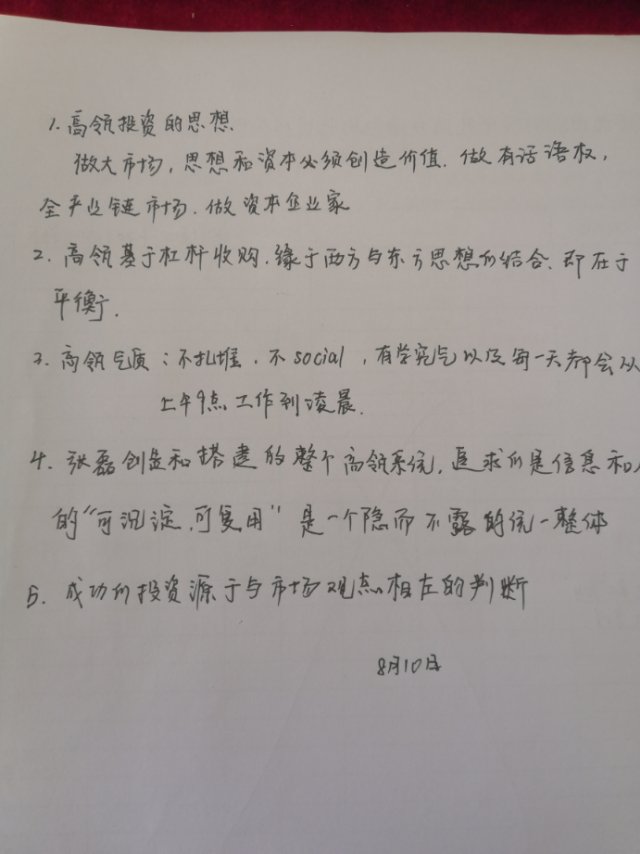 1. 高瓴投资的思想
做大市场，思想和资本必须创造价值．做有话语权，
全产业链市场．做资本企业家
2. 高瓴基于杠杆收购．缘于西方与东方思想的结合、即在于
平衡．
3. 高瓴气质：不扎堆．不social，有学究气以及每一天都会从
上午9点工作到凌晨．
4. 张磊创益和搭建的整个高瓴系统，追求的是信息和人
的“可沉淀．可复用”是一个隐而不露的统一整体
5. 成功的投资源于与市场观点相左的判断
8月10日